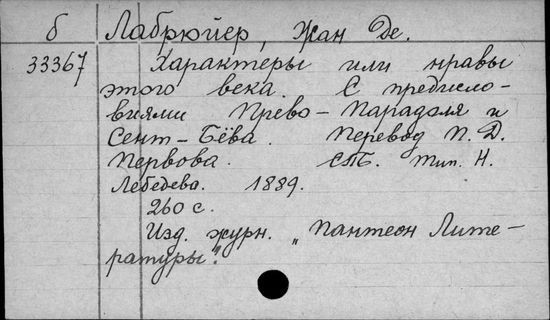 б Лабрюйер, Жан Де.
33367 Характеры или нравы
этого века. С предисло-
виями Прево-Парадоля и
Сент-Бёва. Перевод П. Д.
Первова. СПб. Тип. Н.
Лебедева. 1889.
260 с.
Изд. журн. „Пантеон Лите-
ратуры".